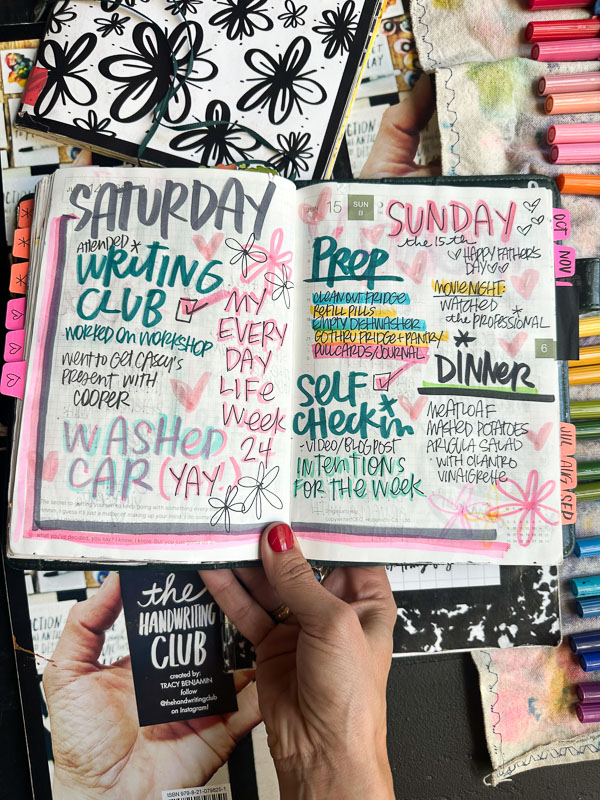 SATURDAY
ATTENDED *
WRITING
CLUB
WORKED ON WORKSHOP
WENT TO GET CASEY'S
PRESENT WITH
COOPER
WASHED
CAR (YAY!)
MY
EVERY
DAY
LIFE
WEEK
24
15 SUN
SUNDAY
the 15th
PREP
CLEAN OUT FRIDGE
REFILL PILLS
EMPTY DISHWASHER
GO THRU FRIDGE + PANTRY
PULL CARDS/JOURNAL
SELF
CHECK in *
- VIDEO/BLOG POST
INTENTIONS
FOR THE WEEK
HAPPY FATHER'S
DAY
MOVIE NIGHT:
WATCHED
the PROFESSIONAL
*
DINNER
MEATLOAF
MASHED POTATOES
ARUGULA SALAD
WITH CILANTRO
VINAIGRETTE
6
OCT
NOV
JUL
AUG
SEP
the
HANDWRITING
CLUB
created by:
TRACY BENJAMIN
follow
@thehandwritingclub
on Instagram!
ISBN 978-8-21-079825-1